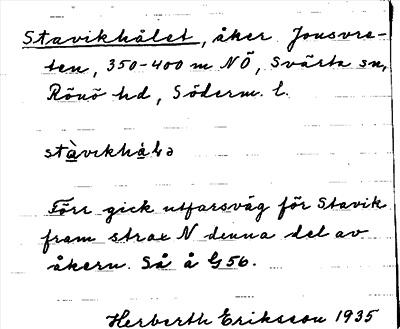 Stavikhålet, åker. Jonsvre-
ten, 350-400 m NÖ, Svärta sn,
Rönö hd, Söderm. l.
stàvikhålə
Förr gick utfarsväg för Stavik
fram strax N denna del av
åkern. Så å G 56.
Herberth Eriksson 1935